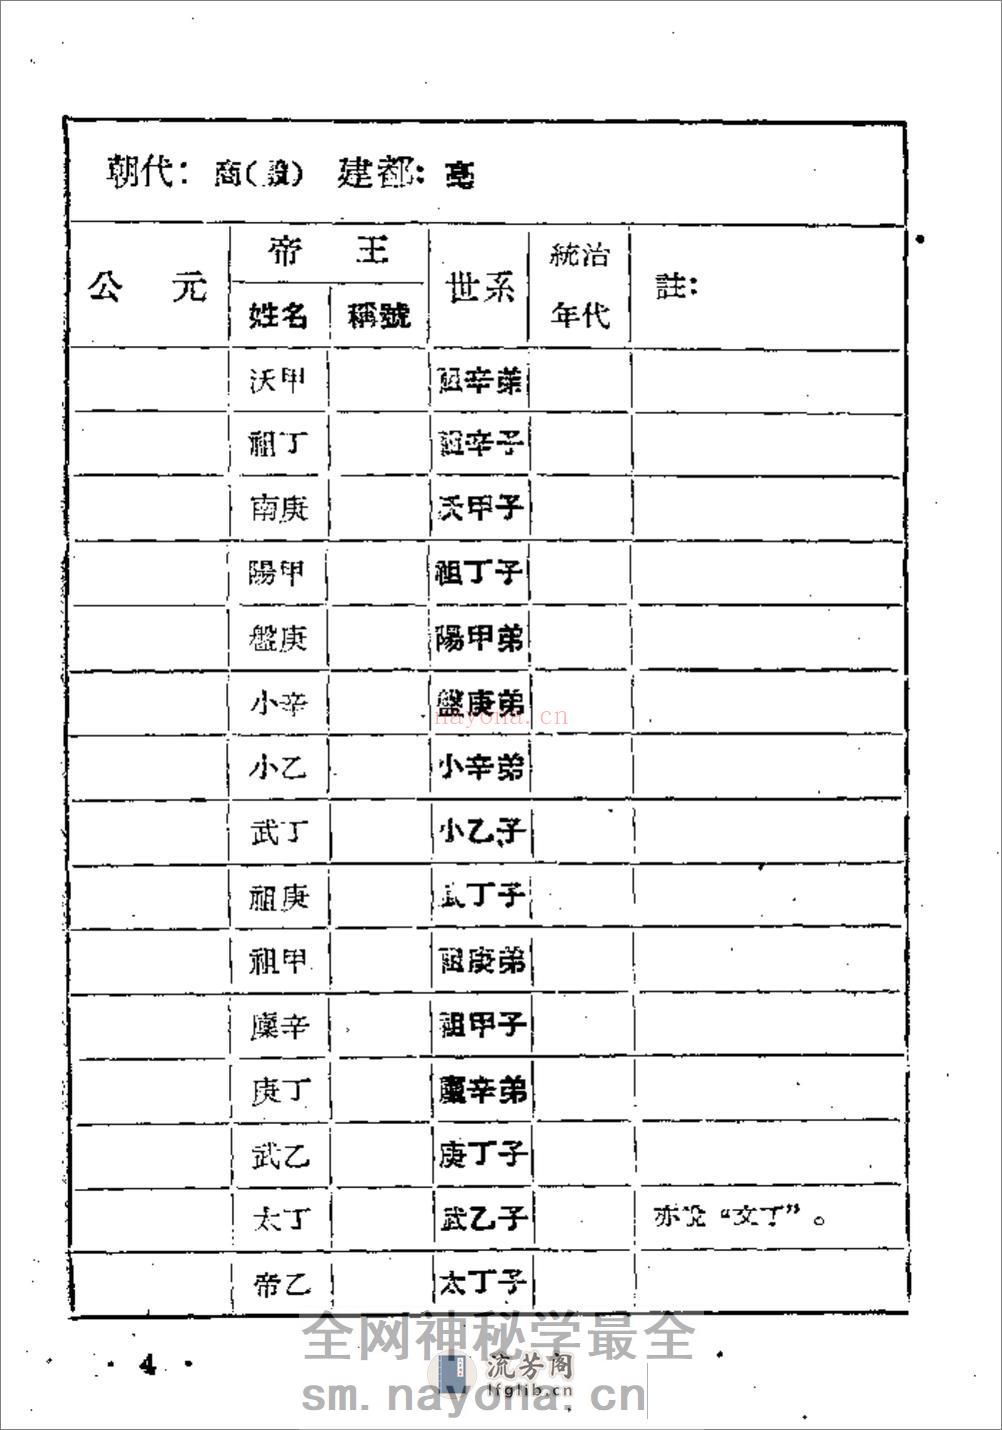 朝代：商(殷) 建都：亳
公元 帝王 世系 統治年代 註：
姓名 稱號
沃甲 祖辛弟
祖丁 祖辛子
南庚 沃甲子
陽甲 祖丁子
盤庚 陽甲弟
小辛 盤庚弟
小乙 小辛弟
武丁 小乙子
祖庚 武丁子
祖甲 祖庚弟
廩辛 祖甲子
庚丁 廩辛弟
武乙 庚丁子
太丁 武乙子 亦说“文丁”。
帝乙 太丁子
nayona.cn
全网神秘学最全
·4·
流芳阁
lfglib.cn
sm.nayona.cn